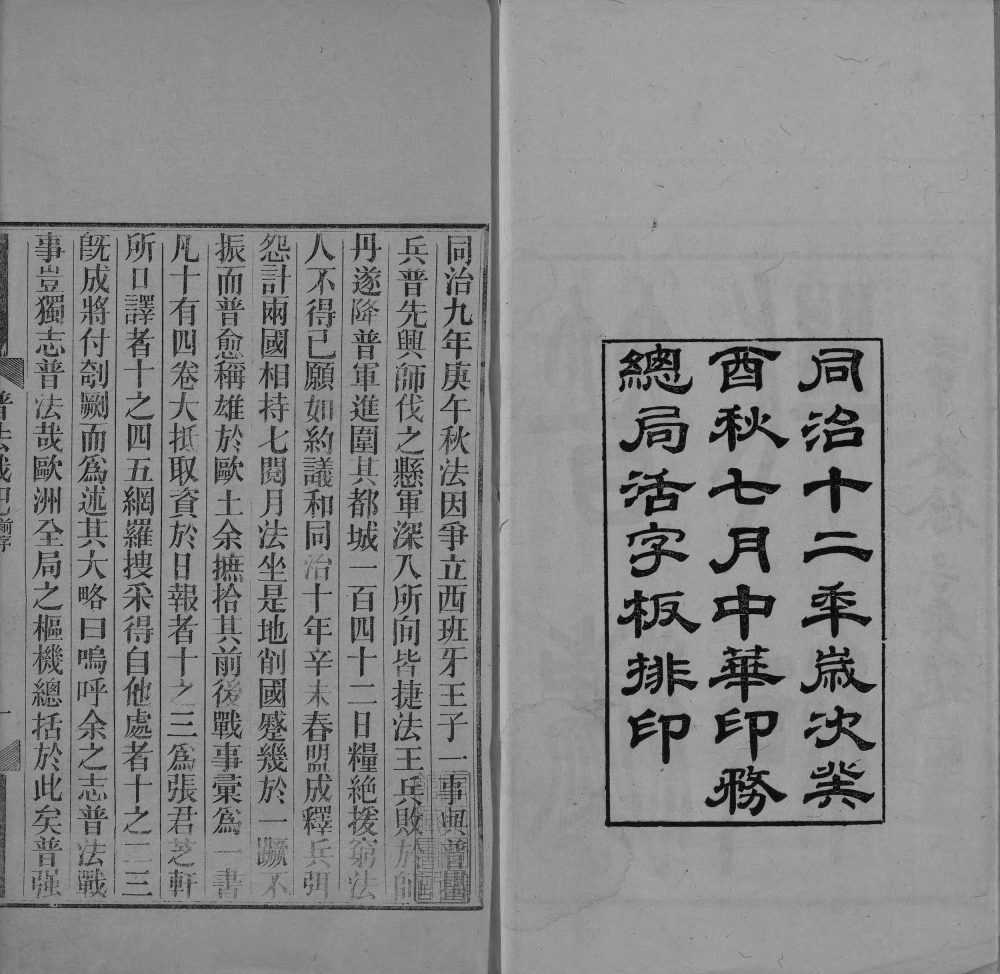 同治十二秊歲次癸
酉秋七月中華印務
總局活字板排印
同治九年庚午秋法因爭立西班牙王子一事與普
兵普先興師伐之懸軍深入所向皆捷法王兵敗於師
丹遂降普軍進圍其都城一百四十二日糧絶援窮法
人不得已願如約議和同治十年辛未春盟成釋兵弭
怨計兩國相持七閱月法坐是地削國蹙幾於一蹶不
振而普愈稱雄於歐土余摭拾其前後戰事彙爲一書
凡十有四卷大抵取資於日報者十之三爲張君芝軒
所口譯者十之四五網羅搜采得自他處者十之二三
旣成將付剞劂而爲述其大略曰嗚呼余之志普法戰
事豈獨志普法哉歐洲全局之樞機總括於此矣普强
普法戰紀
前序
一